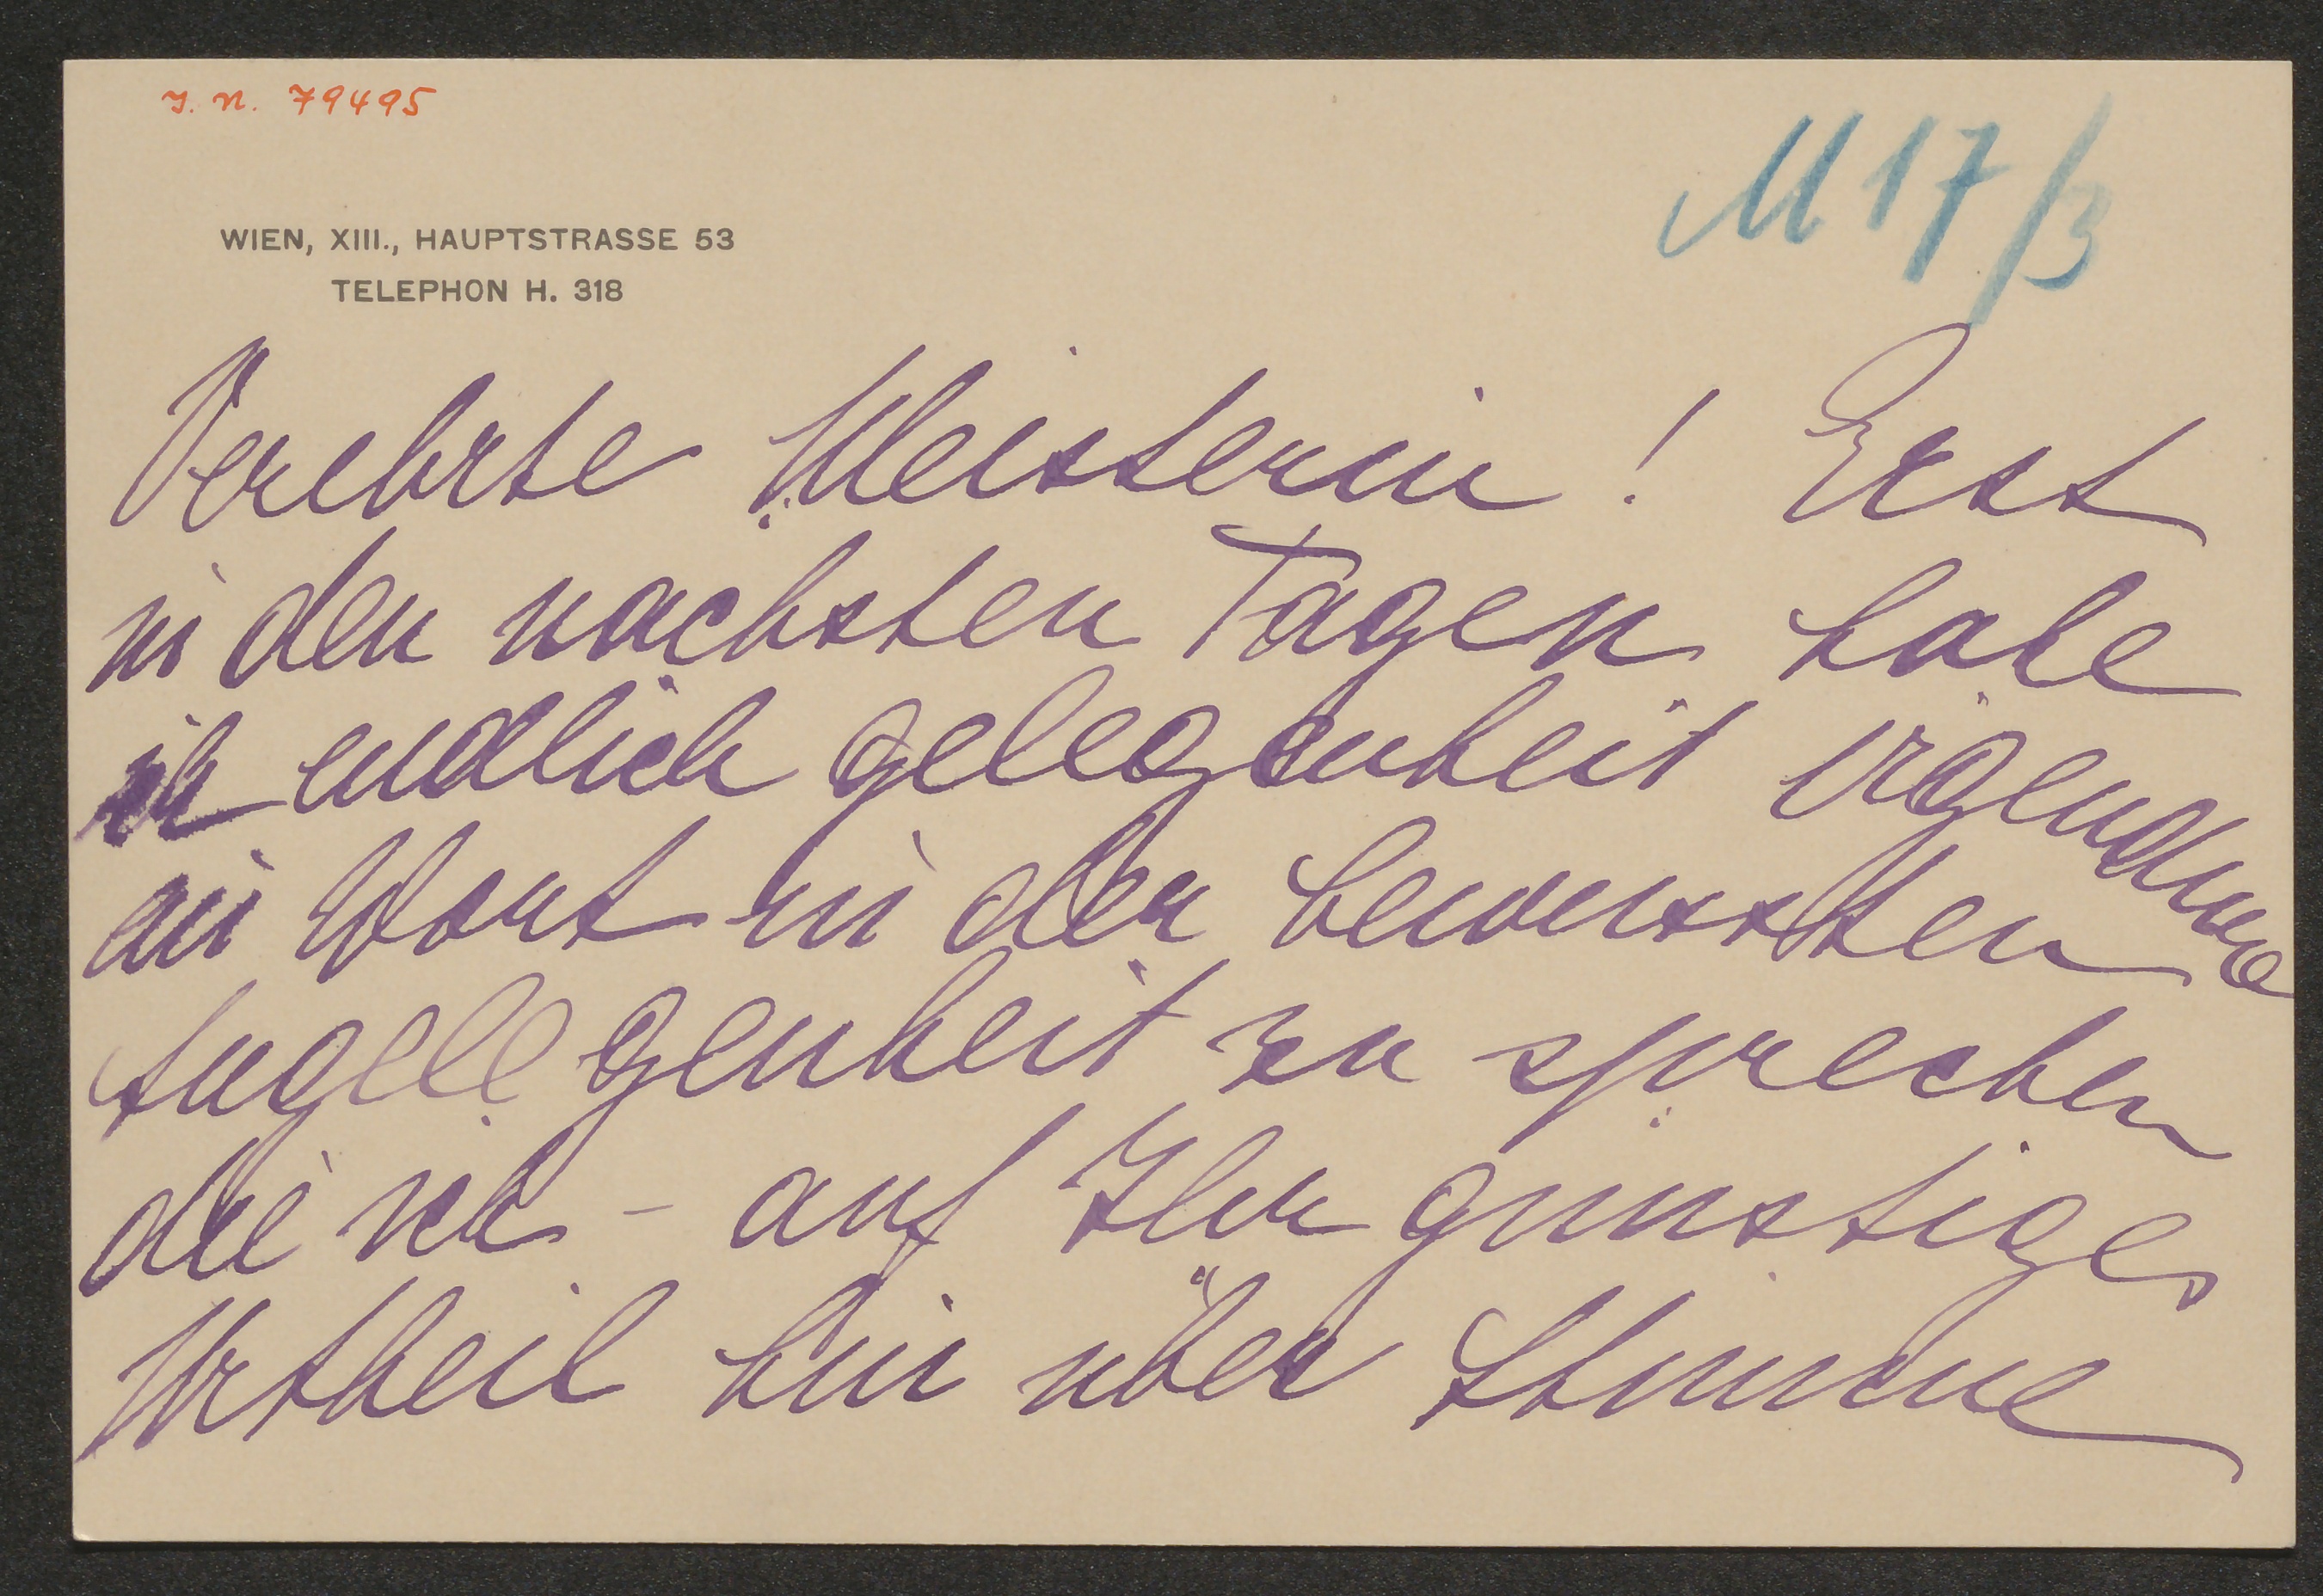 J. N. 79495
M 17/3
WIEN, XIII., HAUPTSTRASSE 53
TELEPHON H. 318
Verehrte Meisterin! Erst
in den nachsten Tagen habe
ich endlich gelegenheit irgendwo
ein Wort in der bewussten
Angelegenheit zu sprechen
die ich - auf Ihr gunstiges
Urtheil hin über Stimme